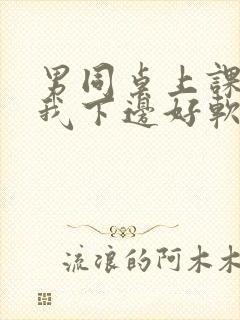 男同桌上課
我下邊好軟
流浪的阿木木